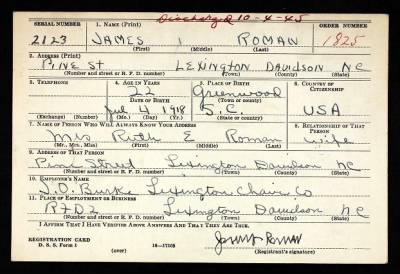 Discharged 10-4-45
SERIAL NUMBER 1. NAME (Print) ORDER NUMBER
2123 JAMES ROMAN 1825
(First) (Middle) (Last)
2. ADDRESS (Print)
PINE ST LEXINGTON DAVIDSON NC
(Number and street or R. F. D. number) (Town) (County) (State)
3. TELEPHONE 4. AGE IN YEARS 5. PLACE OF BIRTH 6. COUNTRY OF CITIZENSHIP
22 Greenwood
DATE OF BIRTH (Town or county)
July 4 1918 S.C. USA
(Exchange) (Number) (Mo.) (Day) (Yr.) (State or country)
7. NAME OF PERSON WHO WILL ALWAYS KNOW YOUR ADDRESS 8. RELATIONSHIP OF THAT PERSON
Mrs Ruth E Roman wife
(Mr., Mrs., Miss) (First) (Middle) (Last)
9. ADDRESS OF THAT PERSON
Pine Street Lexington Davidson NC
(Number and street or R. F. D. number) (Town) (County) (State)
10. EMPLOYER'S NAME
J.O. Burke Lexington Chair Co
11. PLACE OF EMPLOYMENT OR BUSINESS
RFD 2 Lexington Davidson NC
(Number and street or R. F. D. number) (Town) (County) (State)
I AFFIRM THAT I HAVE VERIFIED ABOVE ANSWERS AND THAT THEY ARE TRUE.
REGISTRATION CARD
D. S. S. Form 1 (over) 16—17105 (Registrant's signature)